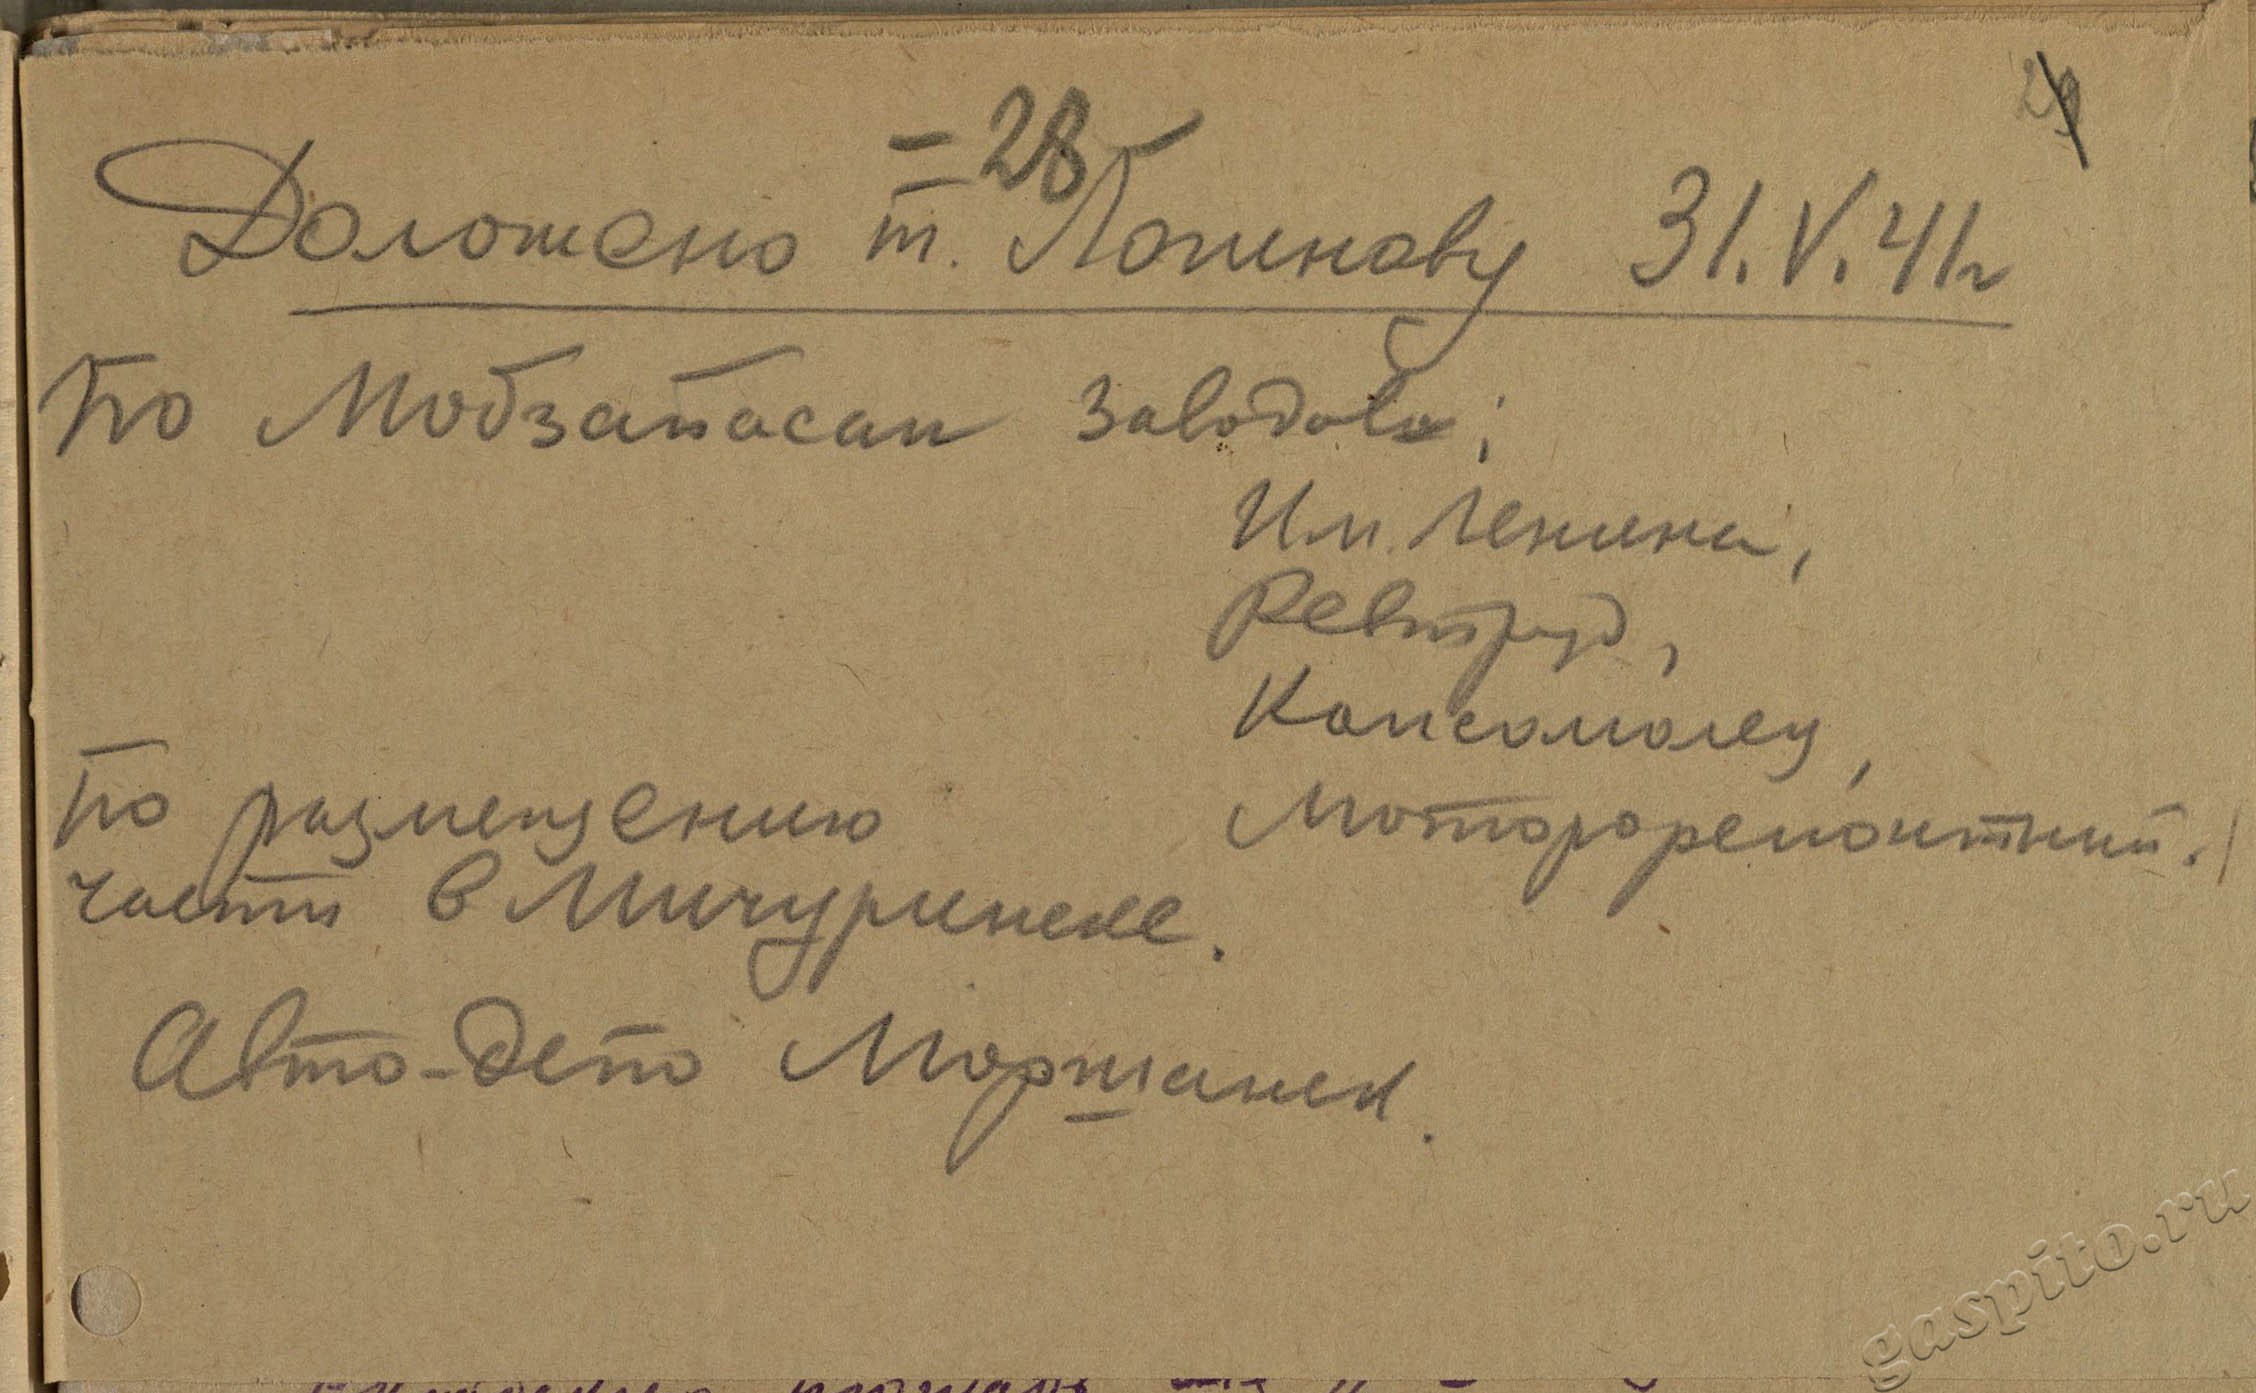 29
= 28
Доложено т. Логинову 31.V.41г
По Мобзапасам заводов:
Им. Ленина,
Ревтруд,
Комсомолец,
По размещению Мотороремонтный.
части в Мичуринске.
Авто-депо Моршанск.
gaspito.ru